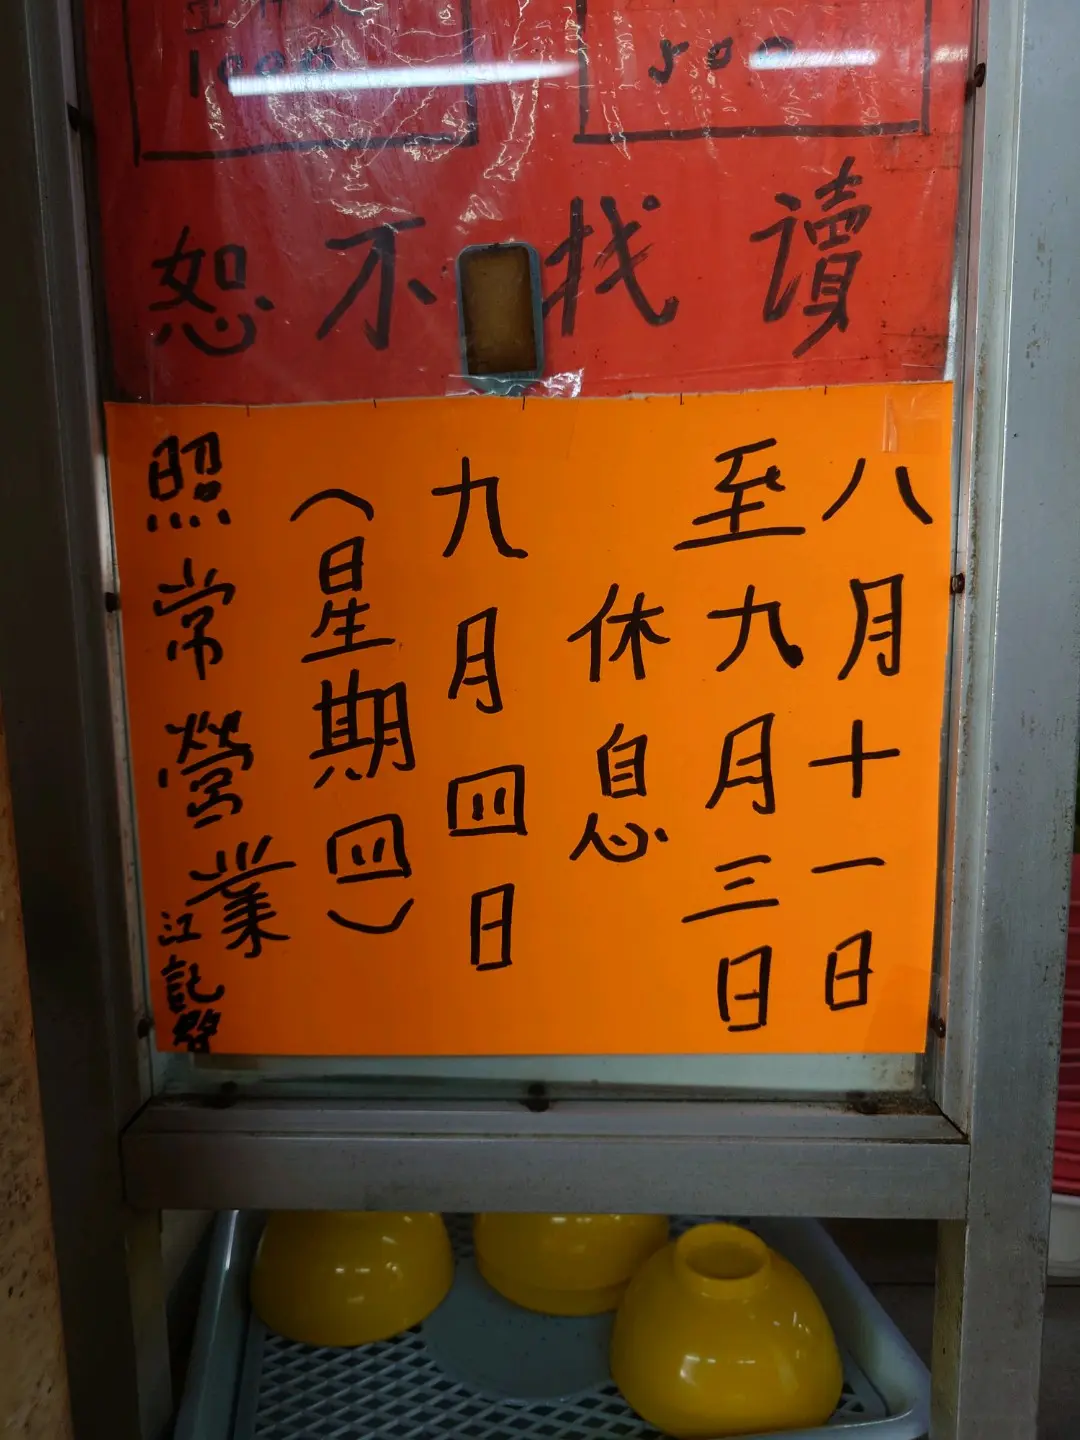 1000
500
恕不找讀
八月十一日
至九月三日
休息
九月四日
（星期四）
照常營業
江記啓